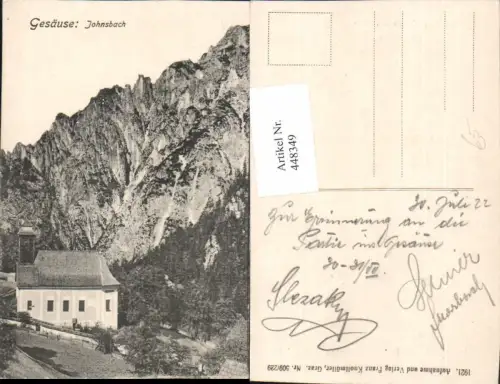 Gesäuse: Johnsbach
Artikel Nr.
448349
30. Juli 22
Zur Erinnerung an die
Partie ins Gesäuse
30-31/VII
Slezak
1921. Aufnahme und Verlag Franz Knollmüller, Graz. Nr. 509/289